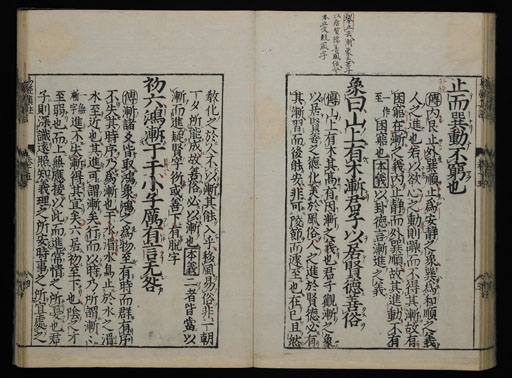 止而巽動不窮也
傳内艮止外巽順止爲安靜之象巽爲和順之義
人之進也若以欲心之動則躁而不得其漸故有
困窮在漸之義内止靜而外巽順故其進動不有
困窮也 本義 以卦德言漸進之義
象曰山上有木漸君子以居賢德善俗
傳山上有木其高有因漸之義也君子觀漸之象
以居賢善之德化美於風俗人之進於賢德必有
其漸習而後能安非可陵節而遽至也在己且然
教化之於人不以漸其能入乎移風易俗非一朝
一夕所能成故善俗必以漸也 本義 二者皆當以
漸而進疑賢字衍或善下有脫字
初六鴻漸于干小子厲有言无咎
傳漸諸爻皆取鴻象鴻之爲物至有時而群有序
不失其時序乃爲漸也干水湄水鳥止於水之湄
水至近也其進可謂漸矣行而以時乃所謂漸
漸得其宜矣六居初至下也陰之才
至弱也而上无應援以此而進常情之所憂也君
子則深識遠照知義理之所安時事之所宜處之